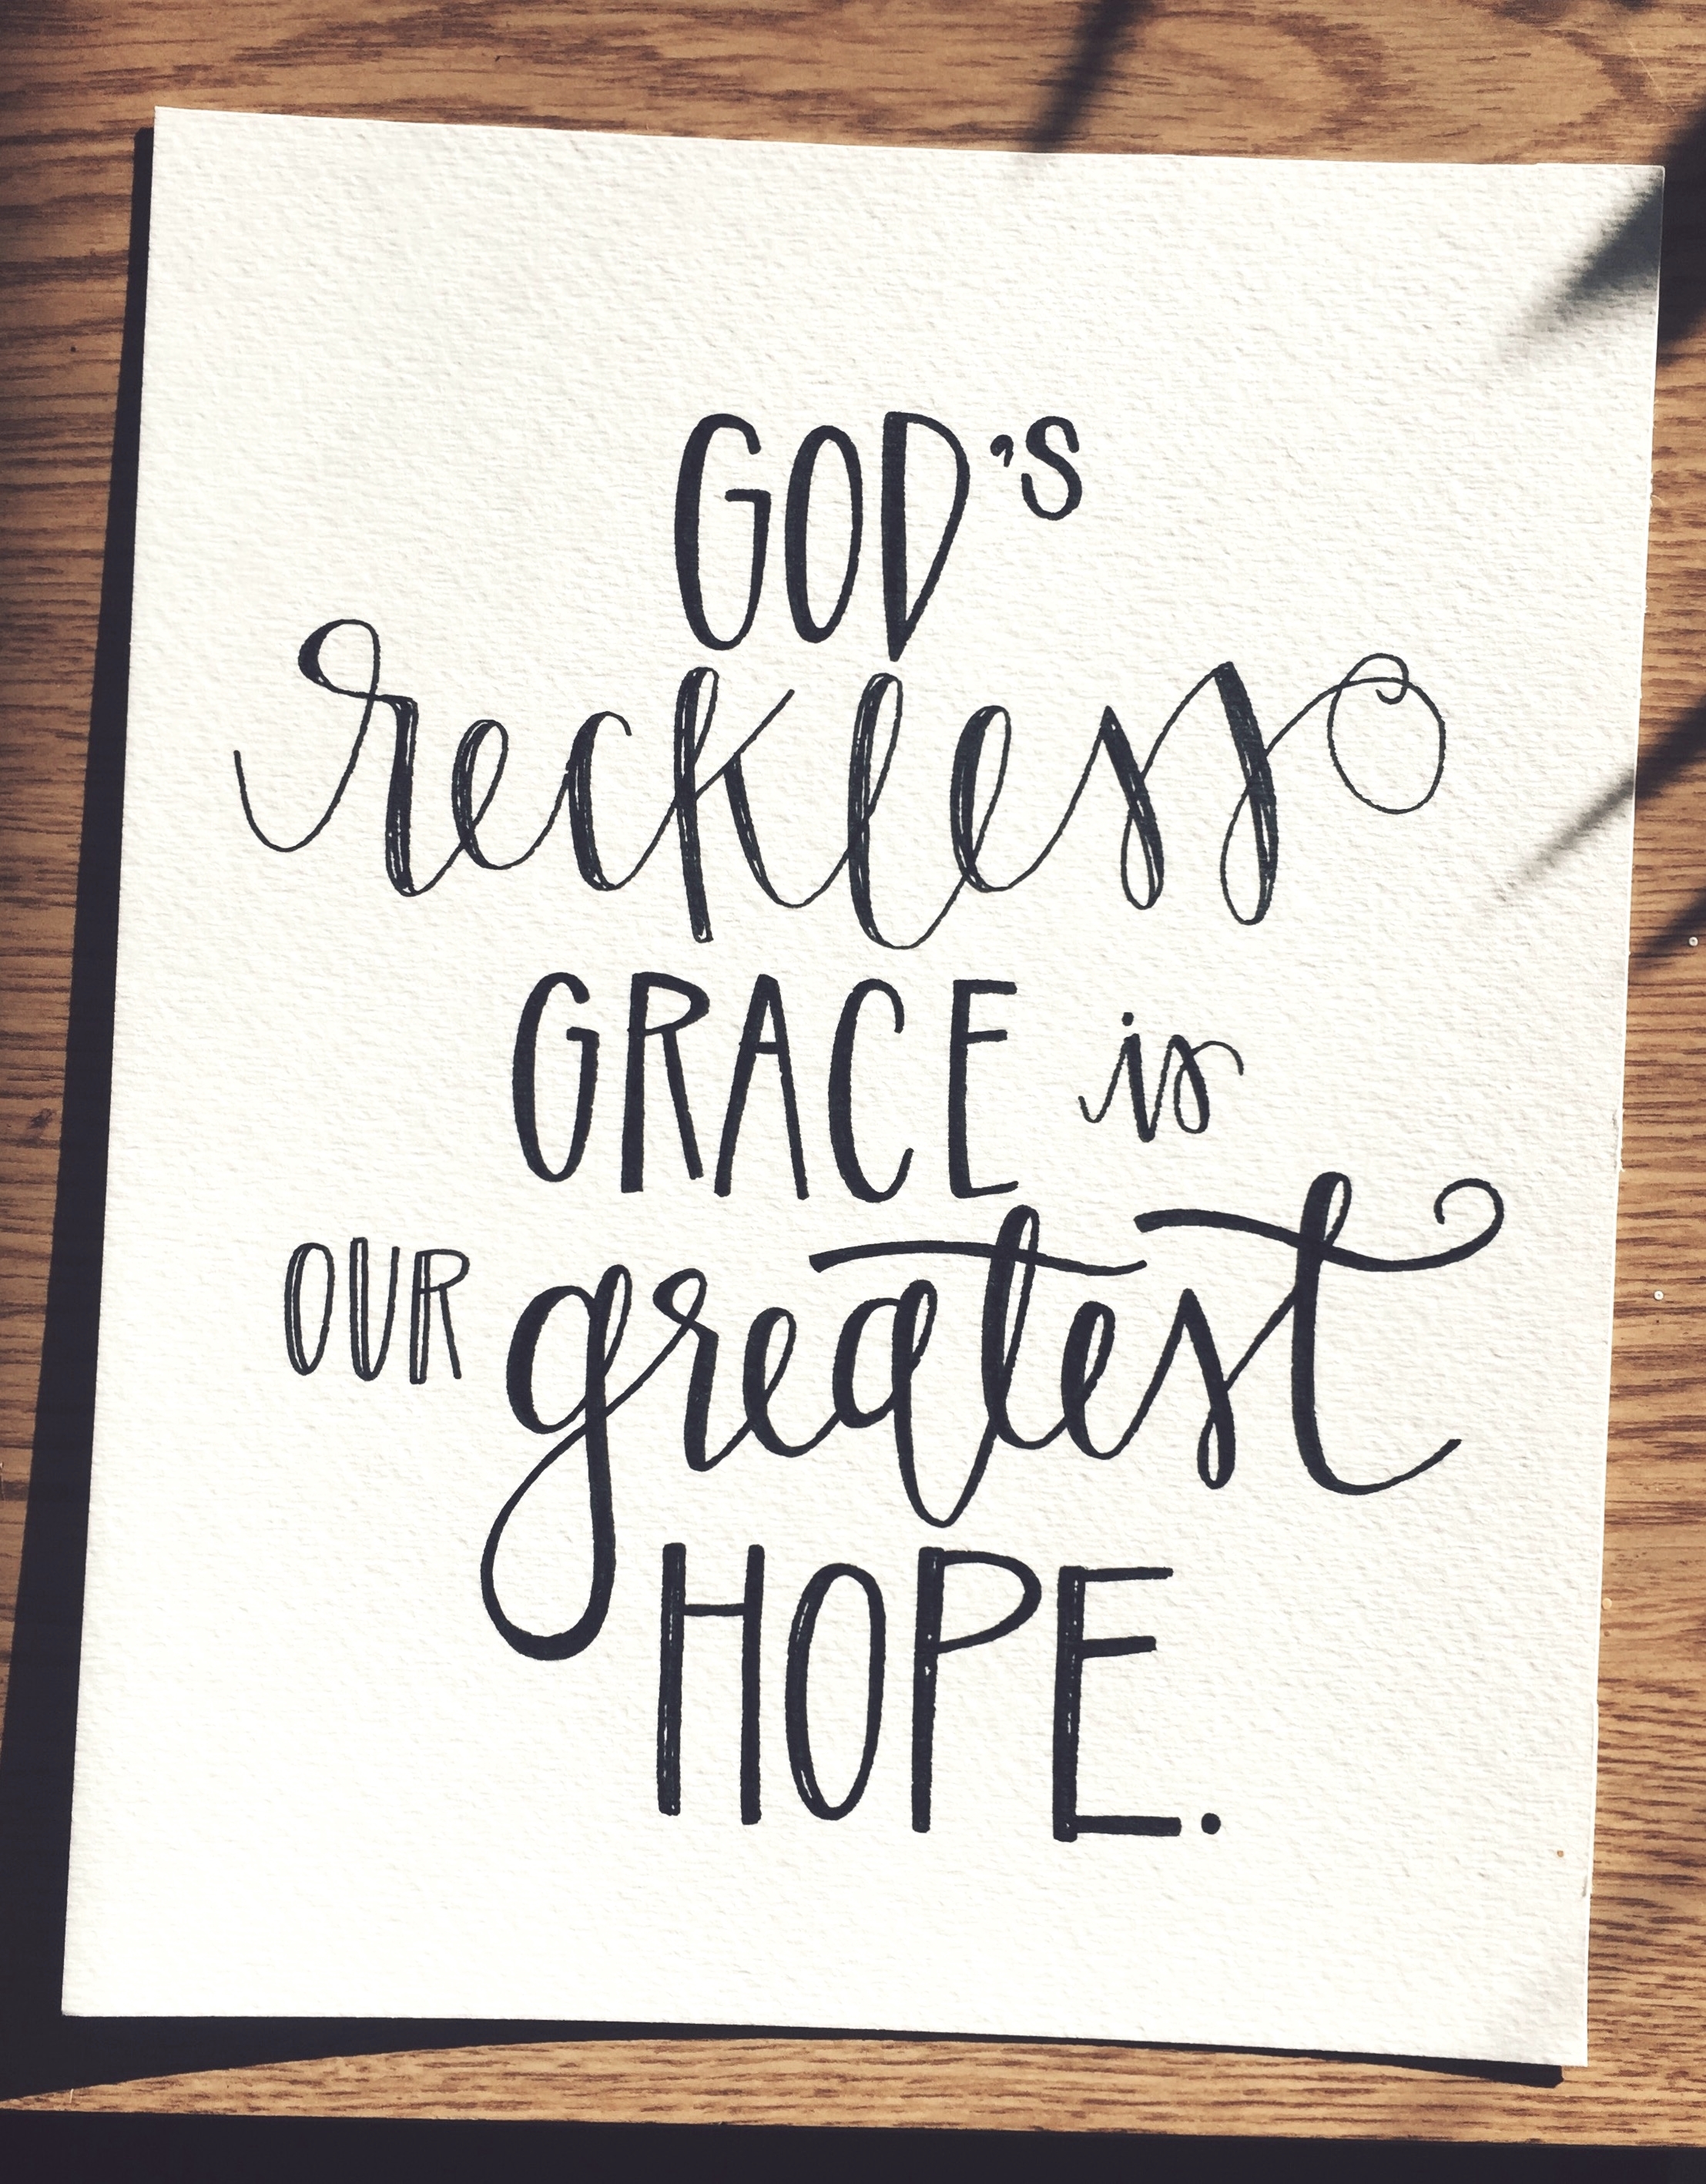 GOD'S
reckless
GRACE is
OUR greatest
HOPE.